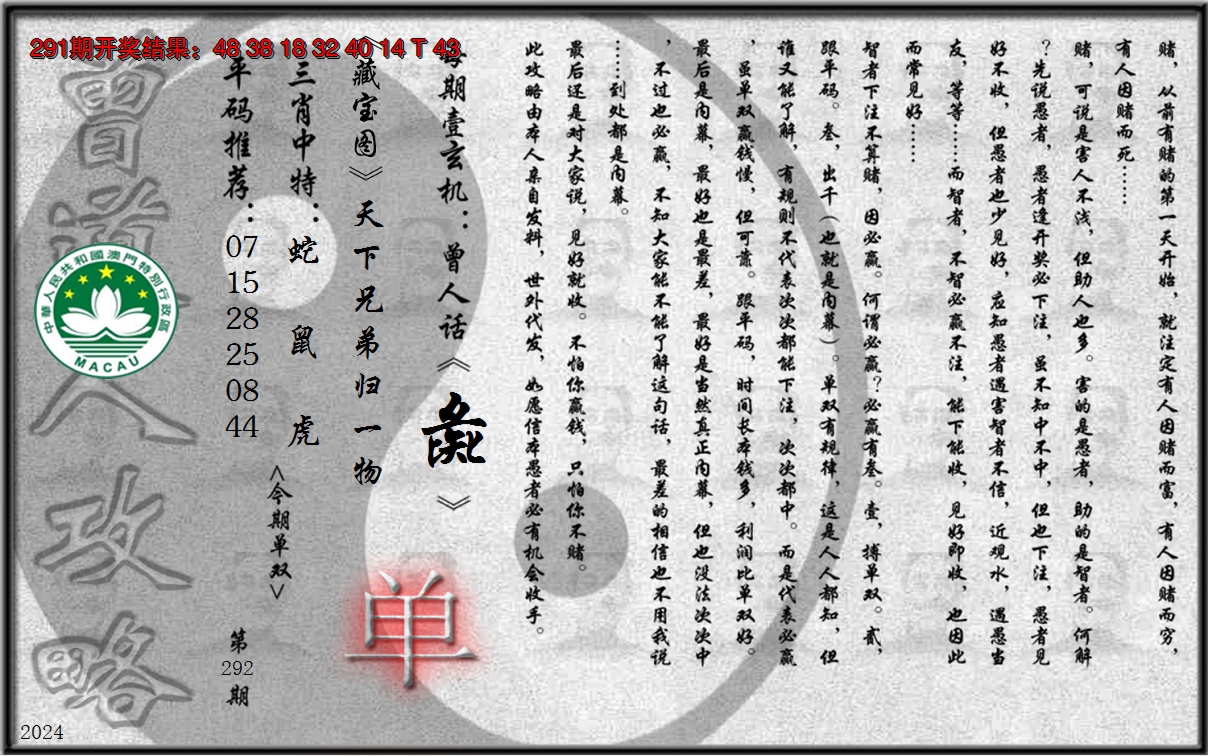 291期开奖结果：48 38 18 32 40 14 T 43
赌，从前有赌的第一天开始，就注定有人因赌而富，有人因赌而穷，
有人因赌而死……
赌，可说是害人不浅，但助人也多。害的是愚者，助的是智者。何解
？先说愚者，愚者逢开奖必下注，虽不知中不中，但也下注，愚者见
好不收，但愚者也少见好，应知愚者遇害智者不信，近观水，遇愚当
友，等等……而智者，不智必赢不注，能下能收，见好即收，也因此
而常见好……
智者下注不算赌，因必赢。何谓必赢？必赢有叁。壹，搏单双。贰，
跟平码。叁，出千（也就是内幕）。单双有规律，这是人人都知，但
谁又能了解，有规则不代表次次都能下注，次次都中。而是代表必赢
，虽单双赢钱慢，但可靠。跟平码，时间长本钱多，利润比单双好。
最后是内幕，最好也是最差，最好是当然真正内幕，但也没法次次中
，不过也必赢，不知大家能不能了解这句话，最差的相信也不用我说
……到处都是内幕。
最后还是对大家说，见好就收。不怕你赢钱，只怕你不赌。
此攻略由本人亲自发料，世外代发，如愿信本愚者必有机会收手。
每期壹玄机：曾人话《彘》
《藏宝图》天下兄弟归一物
三肖中特：蛇 鼠 虎
<今期单双>
单
平码推荐：
07
15
28
25
08
44
第
292
期
曾道人攻略
中華人民共和國澳門特別行政區
MACAU
2024